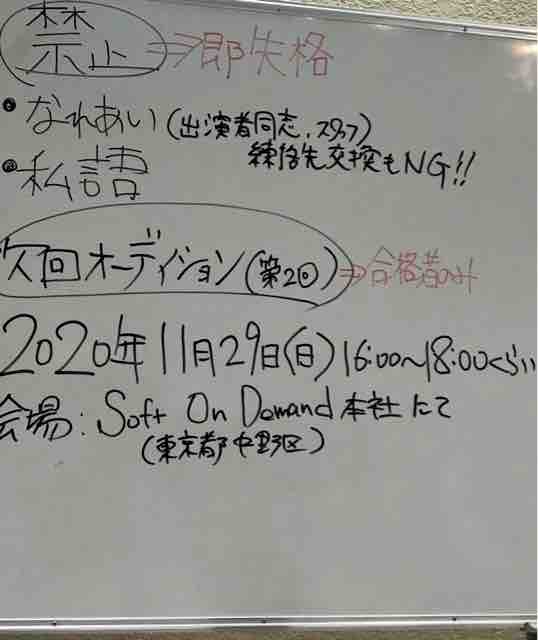 禁止⇒即失格
・なれあい(出演者同志、スタッフ)
練絡先交換もNG!!
・私語
次回オーディション(第2回)⇒合格者のみ
2020年11月29日(日)16:00〜18:00くらい
会場:Soft On Demand本社にて
(東京都中野区)